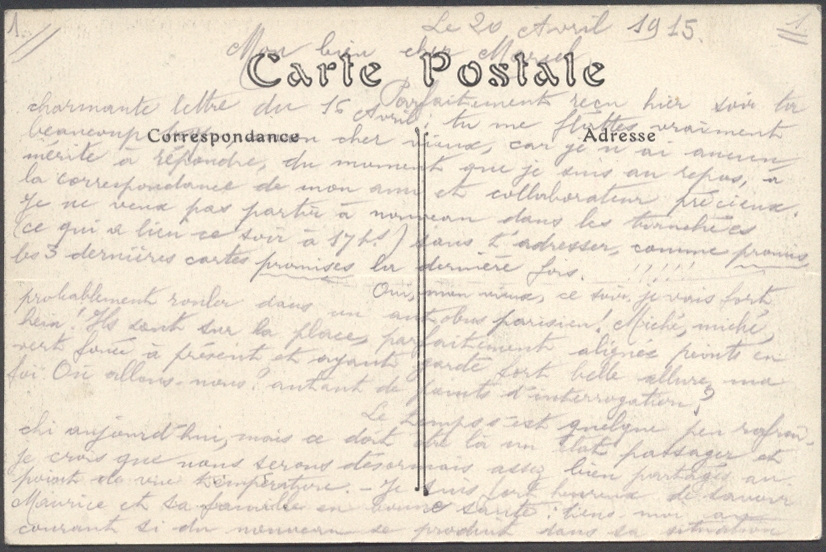 1. Le 20 Avril 1915. 1
Mon bien cher Marcel
Carte Postale
Parfaitement reçu hier soir ta
charmante lettre du 16 Avril; tu me flattes vraiment
Correspondance Adresse
beaucoup mon cher vieux, car je n'ai aucun
mérite à répondre, du moment que je suis au repos, à
la correspondance de mon ami et collaborateur précieux.
Je ne veux pas partir à nouveau dans les tranchées
(ce qui a lieu ce soir à 17h.!) sans t'adresser, comme promis,
les 3 dernières cartes promises la dernière fois. !!!!!!
Oui, mon vieux, ce soir, je vais fort
probablement rouler dans un autobus parisien! Miché, miché,
hein! Ils sont sur la place, parfaitement alignés peints en
vert foncé à présent et ayant gardé fort belle allure, ma
foi. Où allons-nous? autant de points d'interrogation?
Le temps s'est quelque peu rafraî-
chi aujourd'hui, mais ce doit être là un état passager et
je crois que nous serons désormais assez bien partagés au
point de vue température. - Je suis fort heureux de savoir
Maurice et sa famille en bonne santé: tiens-moi au
courant si du nouveau se produit dans sa situation